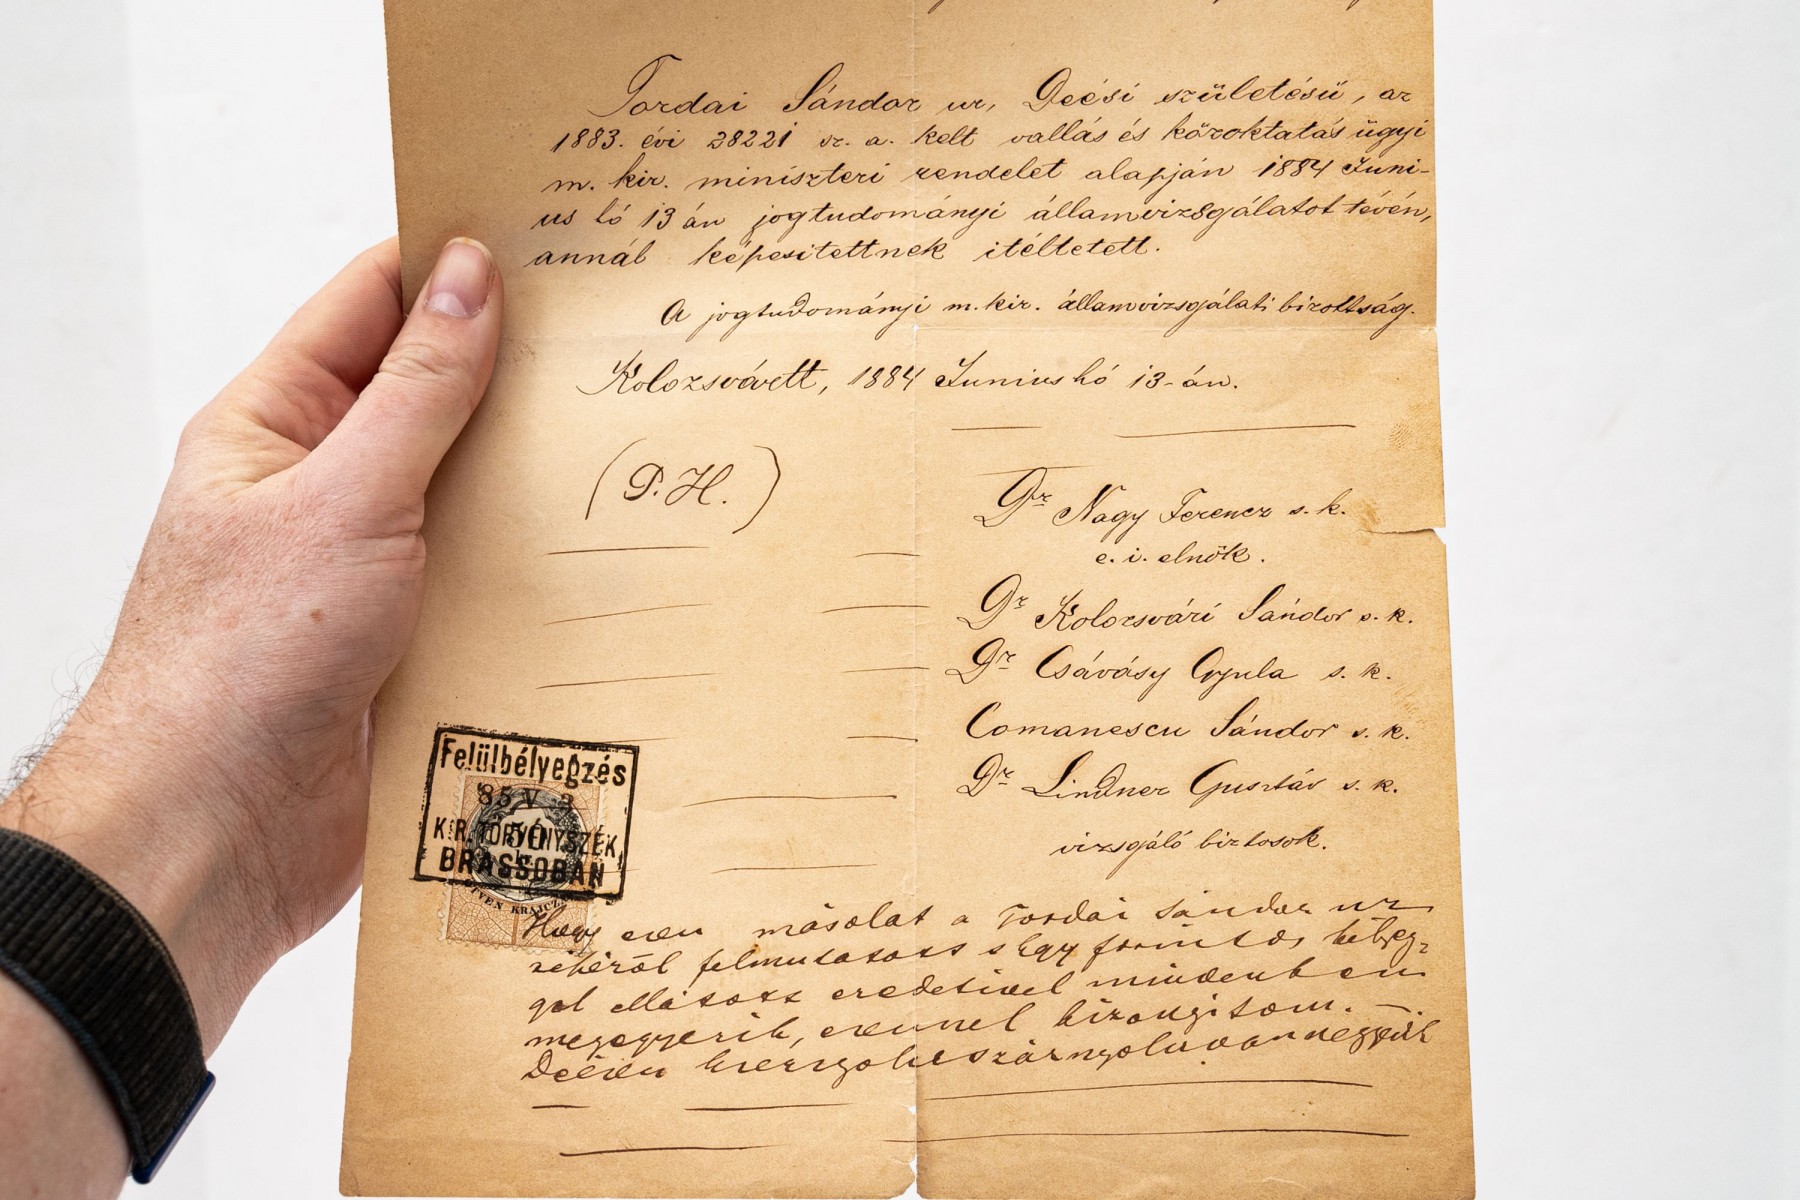 Tordai Sándor ur, Deési születésű, az
1883. évi 28221 sz. a. kelt vallás és közoktatás ügyi
m. kir. miniszteri rendelet alapján 1884 Juni-
us hó 13 án jogtudományi államvizsgálatot tévén,
annál képesitettnek itéltetett.
A jogtudományi m. kir. államvizsgálati bizottság.
Kolozsvártt, 1884 Junius hó 13-án.
(P. H.)
Dr Nagy Ferencz s. k.
e. i. elnök.
Dr Kolozsvári Sándor s. k.
Dr Csávásy Gyula s. k.
Comanescu Sándor s. k.
Dr Lindner Gusztáv s. k.
vizsgáló biztosok.
Felülbélyegzés
85 V
KIR. TÖRVÉNYSZÉK
BRASSÓBAN
50
KRAJCZÁR
Hogy ezen másolat a Tordai Sándor ur
részéről felmutatott s egy forintos bélyeg-
gel ellátott eredetivel mindenben
megegyezik, ezennel bizonyitom. —
Déésen ezernyolczszáznyolczvannegyedik